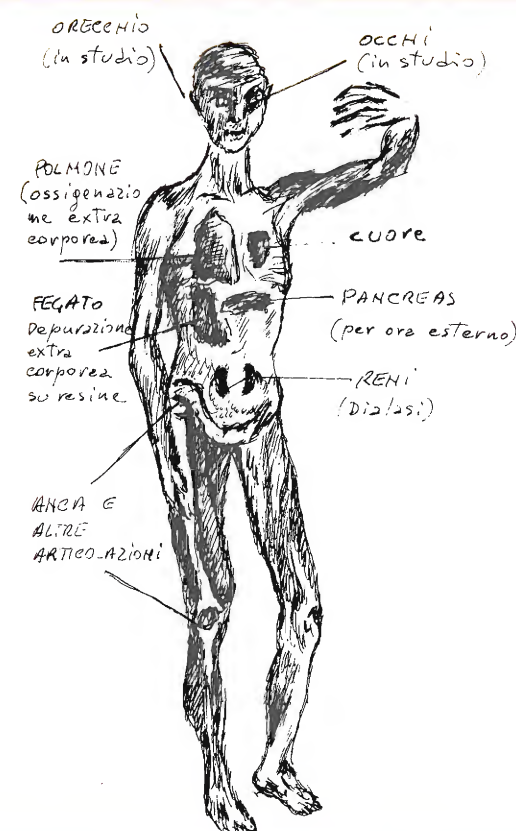 ORECCHIO
(in studio)
OCCHI
(in studio)
POLMONE
(ossigenazio
ne extra
corporea)
cuore
FEGATO
Depurazione
extra
corporea
su resine
PANCREAS
(per ora esterno)
RENI
(Dialasi)
ANCA E
ALTRE
ARTICOLAZIONI